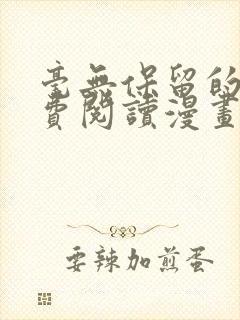 毫無保留的
費閱讀漫畫
要辣加煎蛋